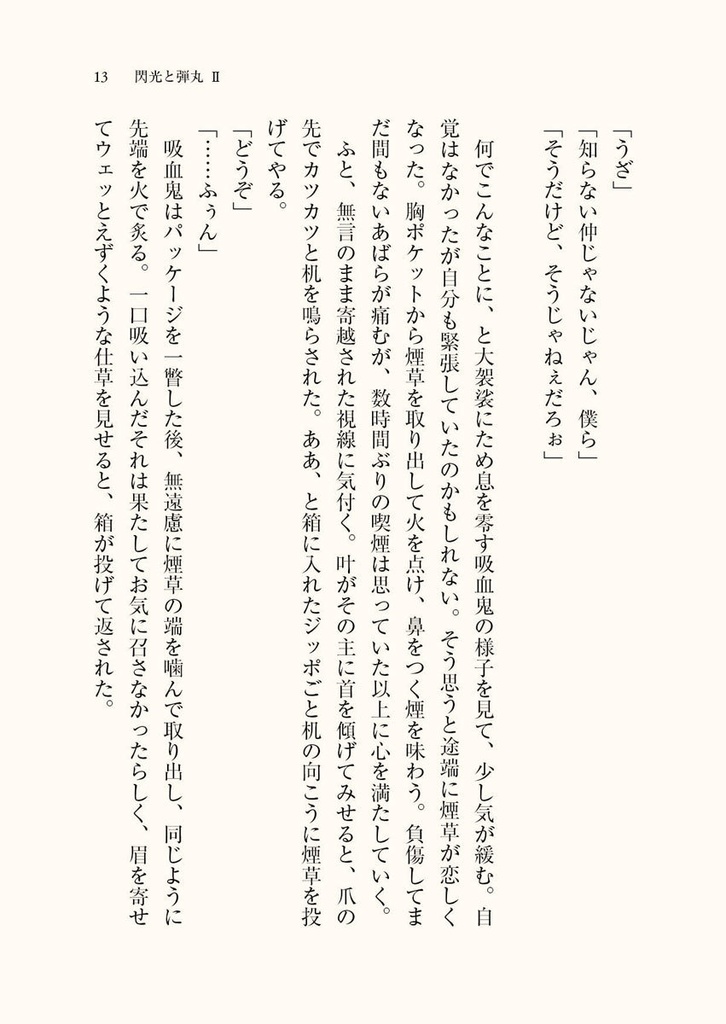 13 閃光と弾丸 Ⅱ
「うざ」
「知らない仲じゃないじゃん、僕ら」
「そうだけど、そうじゃねぇだろぉ」
何でこんなことに、と大袈裟にため息を零す吸血鬼の様子を見て、少し気が緩む。自
覚はなかったが自分も緊張していたのかもしれない。そう思うと途端に煙草が恋しく
なった。胸ポケットから煙草を取り出して火を点け、鼻をつく煙を味わう。負傷してま
だ間もないあばらが痛むが、数時間ぶりの喫煙は思っていた以上に心を満たしていく。
ふと、無言のまま寄越された視線に気付く。叶がその主に首を傾げてみせると、爪の
先でカツカツと机を鳴らされた。ああ、と箱に入れたジッポごと机の向こうに煙草を投
げてやる。
「どうぞ」
「……ふぅん」
吸血鬼はパッケージを一瞥した後、無遠慮に煙草の端を噛んで取り出し、同じように
先端を火で炙る。一口吸い込んだそれは果たしてお気に召さなかったらしく、眉を寄せ
てウェッとえずくような仕草を見せると、箱が投げて返された。